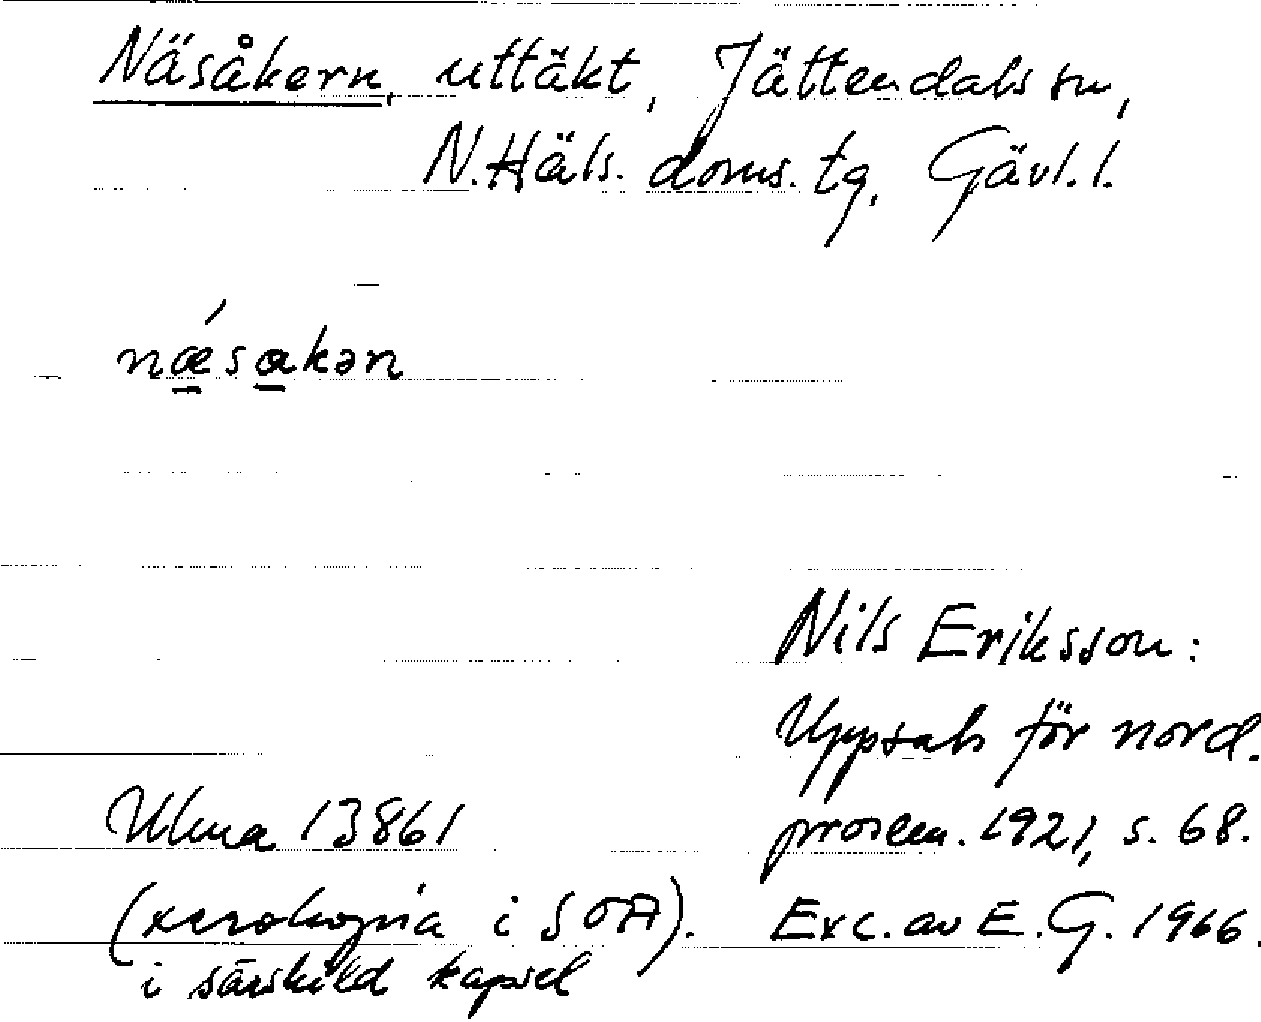 Näsåkern, uttäkt, Jättendals sn,
N. Häls. doms. tg, Gävl. l.
nǽsakən
Nils Eriksson:
Uppsats för nord.
prosem. 1921, s. 68.
Ulma 13861
(xerokopia i SOA). Exc. av E. G. 1966.
i särskild kapsel